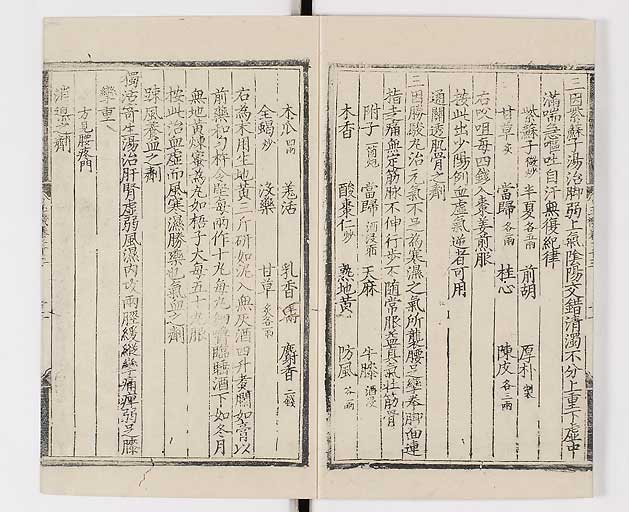 三因紫蘇子湯治脚弱上氣陰陽交錯清濁不分上重下虛中
滿喘急嘔吐自汗無復紀律
紫蘇子 微炒 半夏 各五兩 前胡 厚朴 製
甘草 炙 當歸 各二兩 桂心 陳皮 各三兩
右㕮咀每四錢入棗姜煎服
按此出少陽例血虛氣逆者可用
通關透肌骨之劑
三因勝駿丸治元氣不足爲寒濕之氣所襲腰足攣拳脚面連
指走痛無定筋脉不伸行步不隨常服益真氣壯筋骨
附子 當歸 酒浸 天麻 牛膝 酒浸
木香 酸棗仁 炒 熟地黄 防風 各二兩
木瓜 四兩 羌活 乳香 麝香
全蝎 炒 沒藥 甘草 炙各一兩
右爲末用生地黄三斤研如泥入無灰酒四升煮爛如膏以
前藥和匀杵令堅每兩作十丸每丸細嚼臨睡酒下如冬月
無地黄煉蜜爲丸如梧子大每五十丸服
按此治血虛而風寒濕勝藥也氣血之劑
踈風養血之劑
獨活寄生湯治肝腎虛弱風濕内攻兩脛緩縱攣痛痺弱足膝
攣重
方見腰疼門
之劑